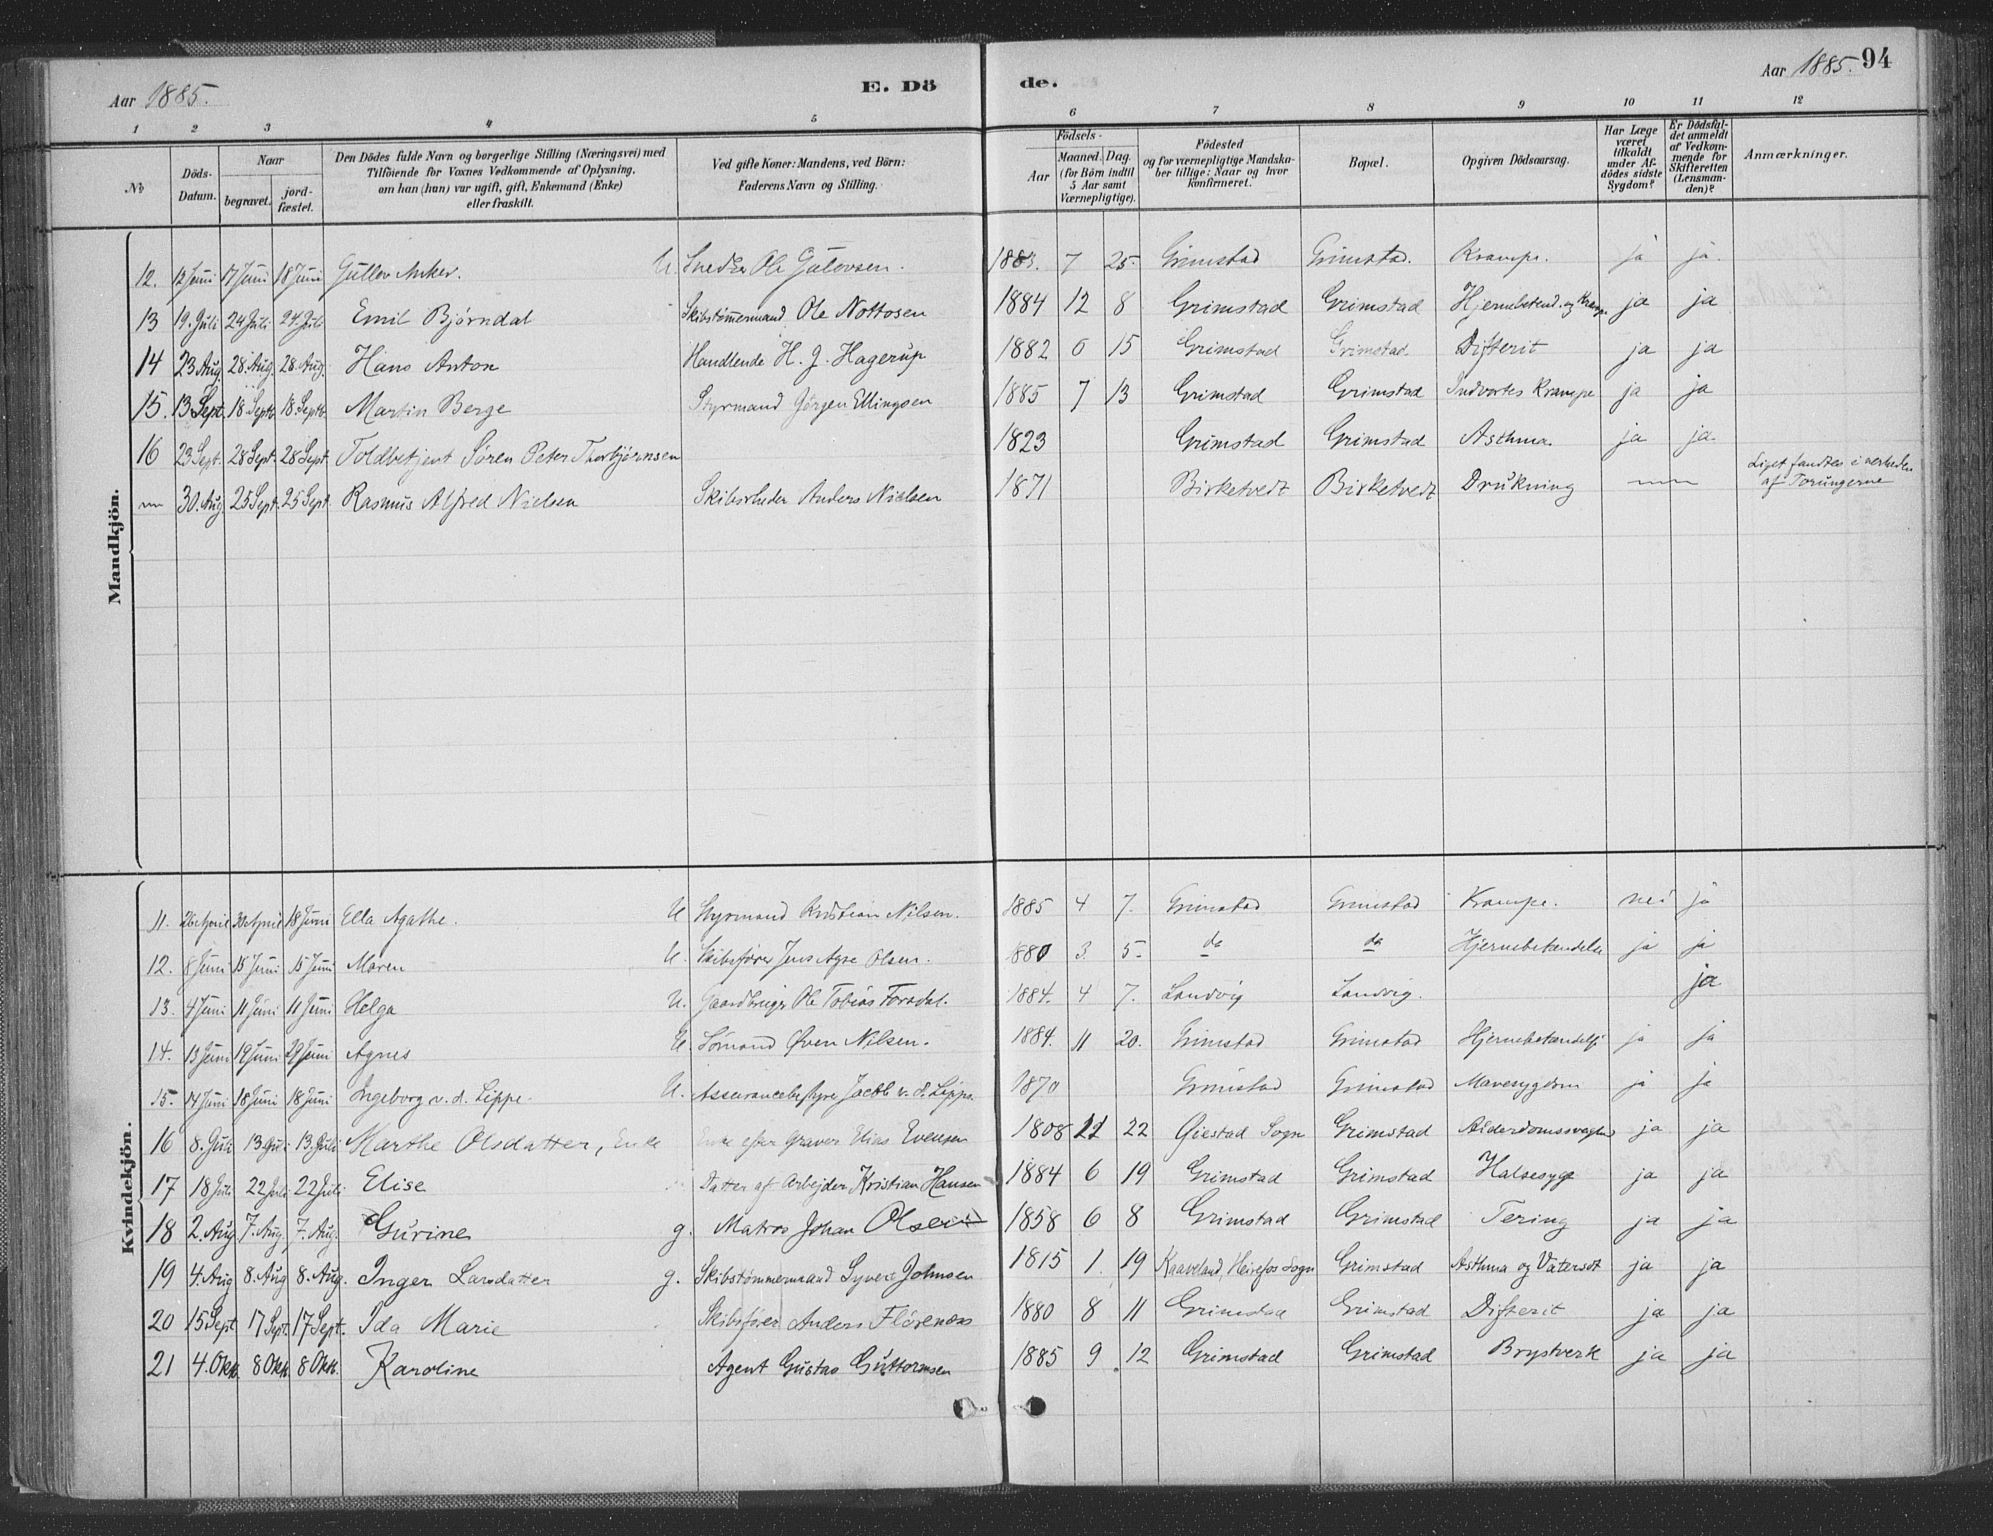 Aar 1885.
E. Dö de.
Aar 1885. 94
1 2 3 4 5 6 7 8 9 10 11 12
No
Döds-Datum.
Naar
begravet.
jord-fæstet.
Den Dödes fulde Navn og borgerlige Stilling (Næringsvei) med
Tilföiende for Voxnes Vedkommende af Oplysning,
om han (hun) var ugift, gift, Enkemand (Enke)
eller fraskilt.
Ved gifte Koner: Mandens, ved Börn:
Faderens Navn og Stilling.
Födsels-
Aar
Maaned. Dag.
(for Börn indtil
5 Aar samt
Værnepligtige).
Födested
og for værnepligtige Mandska-
ber tillige: Naar og hvor
konfirmeret.
Bopæl.
Opgiven Dödsaarsag.
Har Læge
været
tilkaldt
under Af-
dödes sidste
Sygdom?
Er Dödsfal-
det anmeldt
af Vedkom-
mende for
Skifteretten
(Lensman-
den)?
Anmærkninger.
Mandkjön.
12. 12 Juni 17 Juni 18 Juni Gullov Anker. U. Snedker Ole Gulovsen. 1885. 7 25 Grimstad Grimstad. Krampe. ja ja.
13 19. Juli 24 Juli 24 Juli Emil Bjørndal Skibstømmermand Ole Nottosen 1884 12 8 Grimstad Grimstad Hjernebetend. og Krampe ja ja
14 23 Aug. 28. Aug. 28. Aug. Hans Anton Handlende H. J. Hagerup 1882 6 15 Grimstad Grimstad Difterit ja ja
15. 13 Sept. 18 Septb. 18. Septb. Martin Berge Styrmand Jørgen Ellingsen 1885 7 13 Grimstad Grimstad Indvortes Krampe ja ja
16 23 Sept. 28 Sept. 28 Sept. Toldbetjent Søren Peter Thorbjørnsen 1823 Grimstad Grimstad Asthma ja ja
30. Aug 25 Sept. 25 Sept. Rasmus Alfred Nielsen Skibsrheder Anders Nielsen 1871 Birketvedt Birketvedt Drukning Liget fandtes i nerheden
af Torungerne
Kvindekjön.
11. 26 April 30 April 18 Juni Ella Agathe. U Styrmand Kristian Nilsen. 1885 4 7. Grimstad Grimstad Krampe. nei ja
12. 8 Juni 15 Juni 15 Juni Maren U. Skibsfører Jens Olsen. 1880 3. 5 do do Hjernebetændelse ja ja
13. 4 Juni 11 Juni 11 Juni Helga U. Gaardbruger Ole Tobias Forsdal. 1884. 4 7. Landvig Landvig. ja
14. 13 Juni 19 Juni 29 Juni Agnes U. Sømand Øven Nilsen. 1884. 11 20. Grimstad Grimstad Hjernebetændelse ja ja
15. 14 Juni 18 Juni 18 Juni Ingeborg v. d. Lippe. U. Assurancebestyrer Jacob v. d. Lippe. 1870 Grimstad Grimstad Mavesygdom ja ja
16 8. Juli 13. Juli 13. Juli Marthe Olsdatter, Enke Enke efter Graver Elias Evensen 1808 11 22 Øiestad Sogn Grimstad Alderdomssvaghed ja ja
17 18 Juli 22 Juli 22 Juli Elise Datter af Arbejder Kristian Hansen 1884 6 19 Grimstad Grimstad Halsesyge ja ja
18 2. Aug 7. Aug 7. Aug. Gurine g. Matros Johan Olsen 1858 6 8 Grimstad Grimstad Tering ja ja
19 4. Aug 8. Aug 8. Aug. Inger Larsdatter g. Skibstømmermand Syvert Johnsen 1815 1. 19 Kaaveland, Heirefos Sogn Grimstad Asthma og Vatersot ja ja
20 15 Sept 17 Sept. 17 Sept. Ida Marie Skibsfører Anders Flørenæs 1880 8 11 Grimstad Grimstad Difterit ja ja
21 4. Oktb. 8 Oktb. 8 Oktb. Karoline Agent Gustav Guttormsen 1885 9 12 Grimstad Grimstad Brystverk ja ja